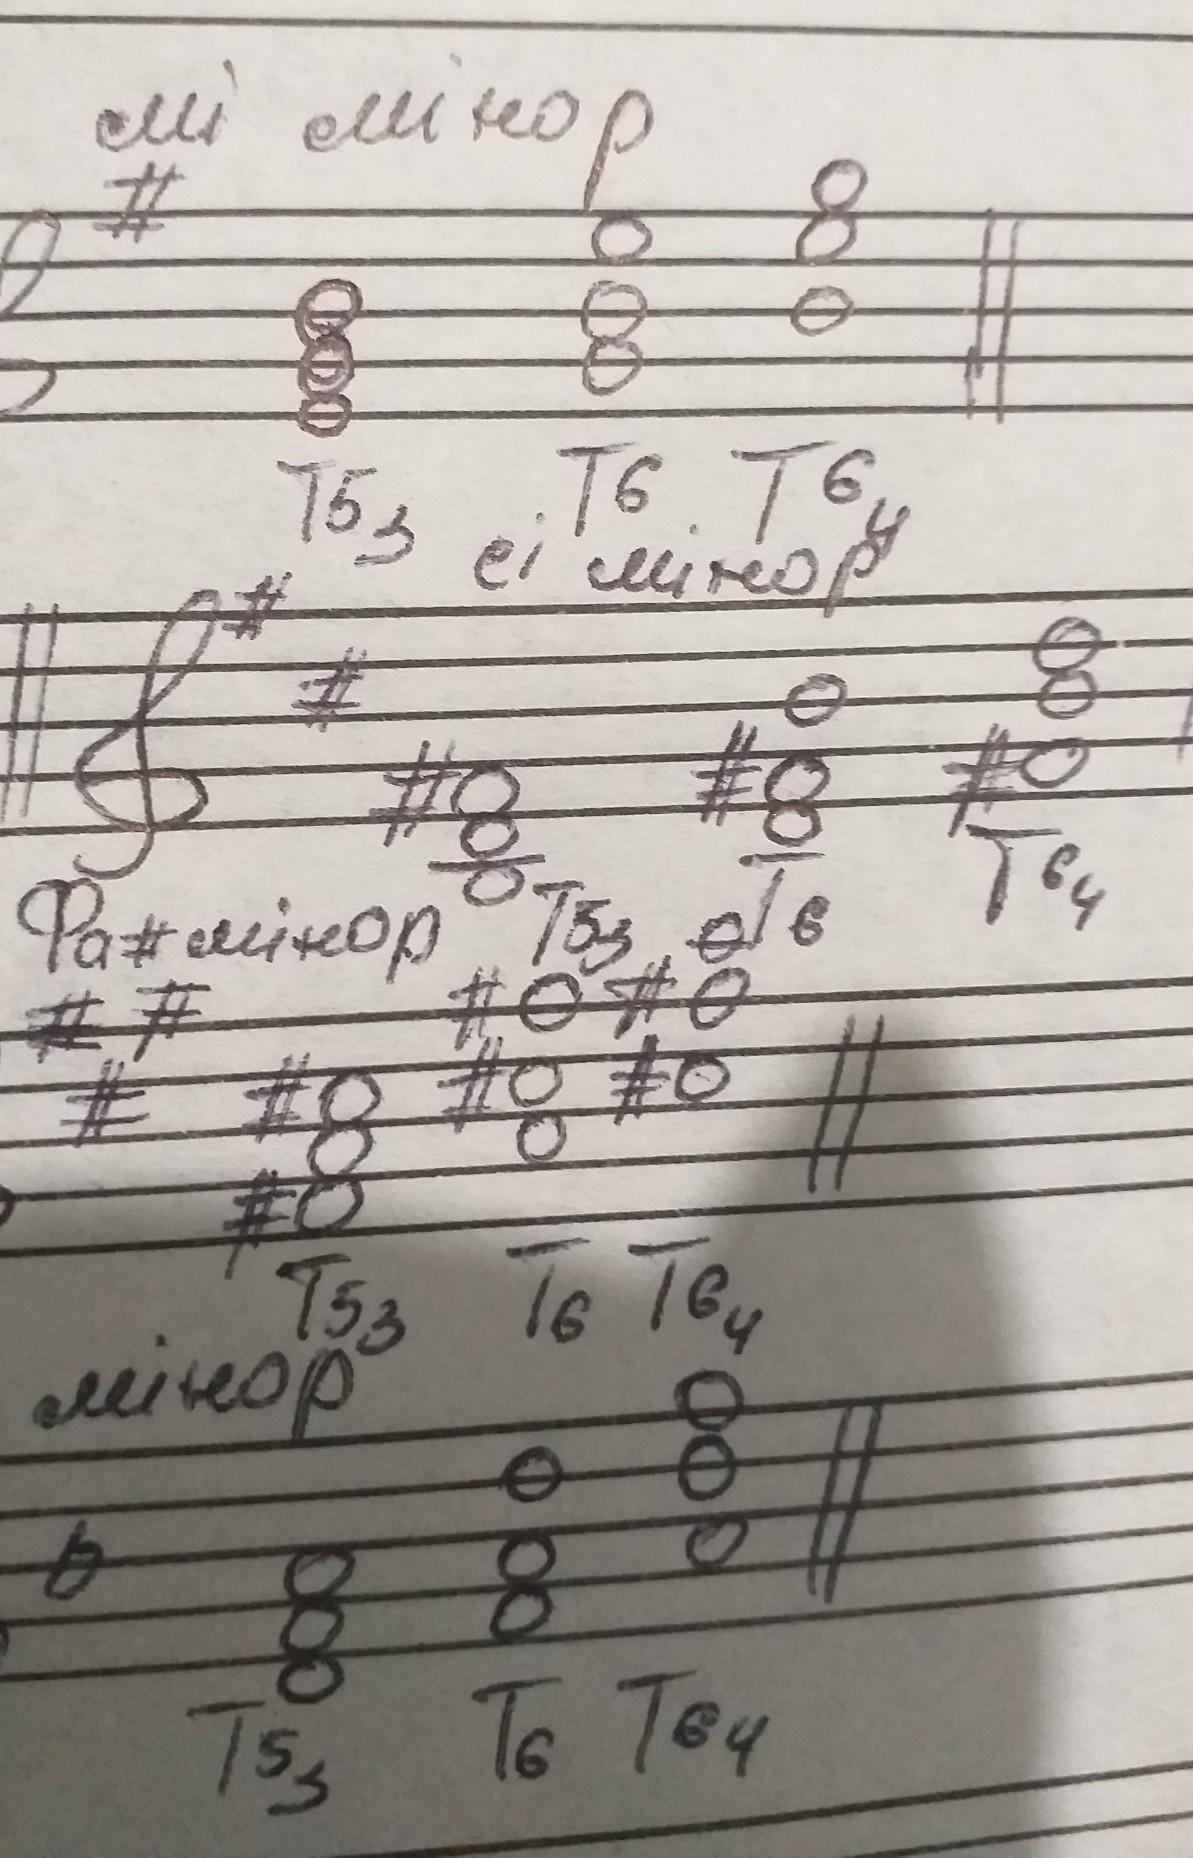 мі мінор
T53 T6 T64
сі мінор
T53 T6 T64
Фа# мінор
T53 T6 T64
мінор
T53 T6 T64